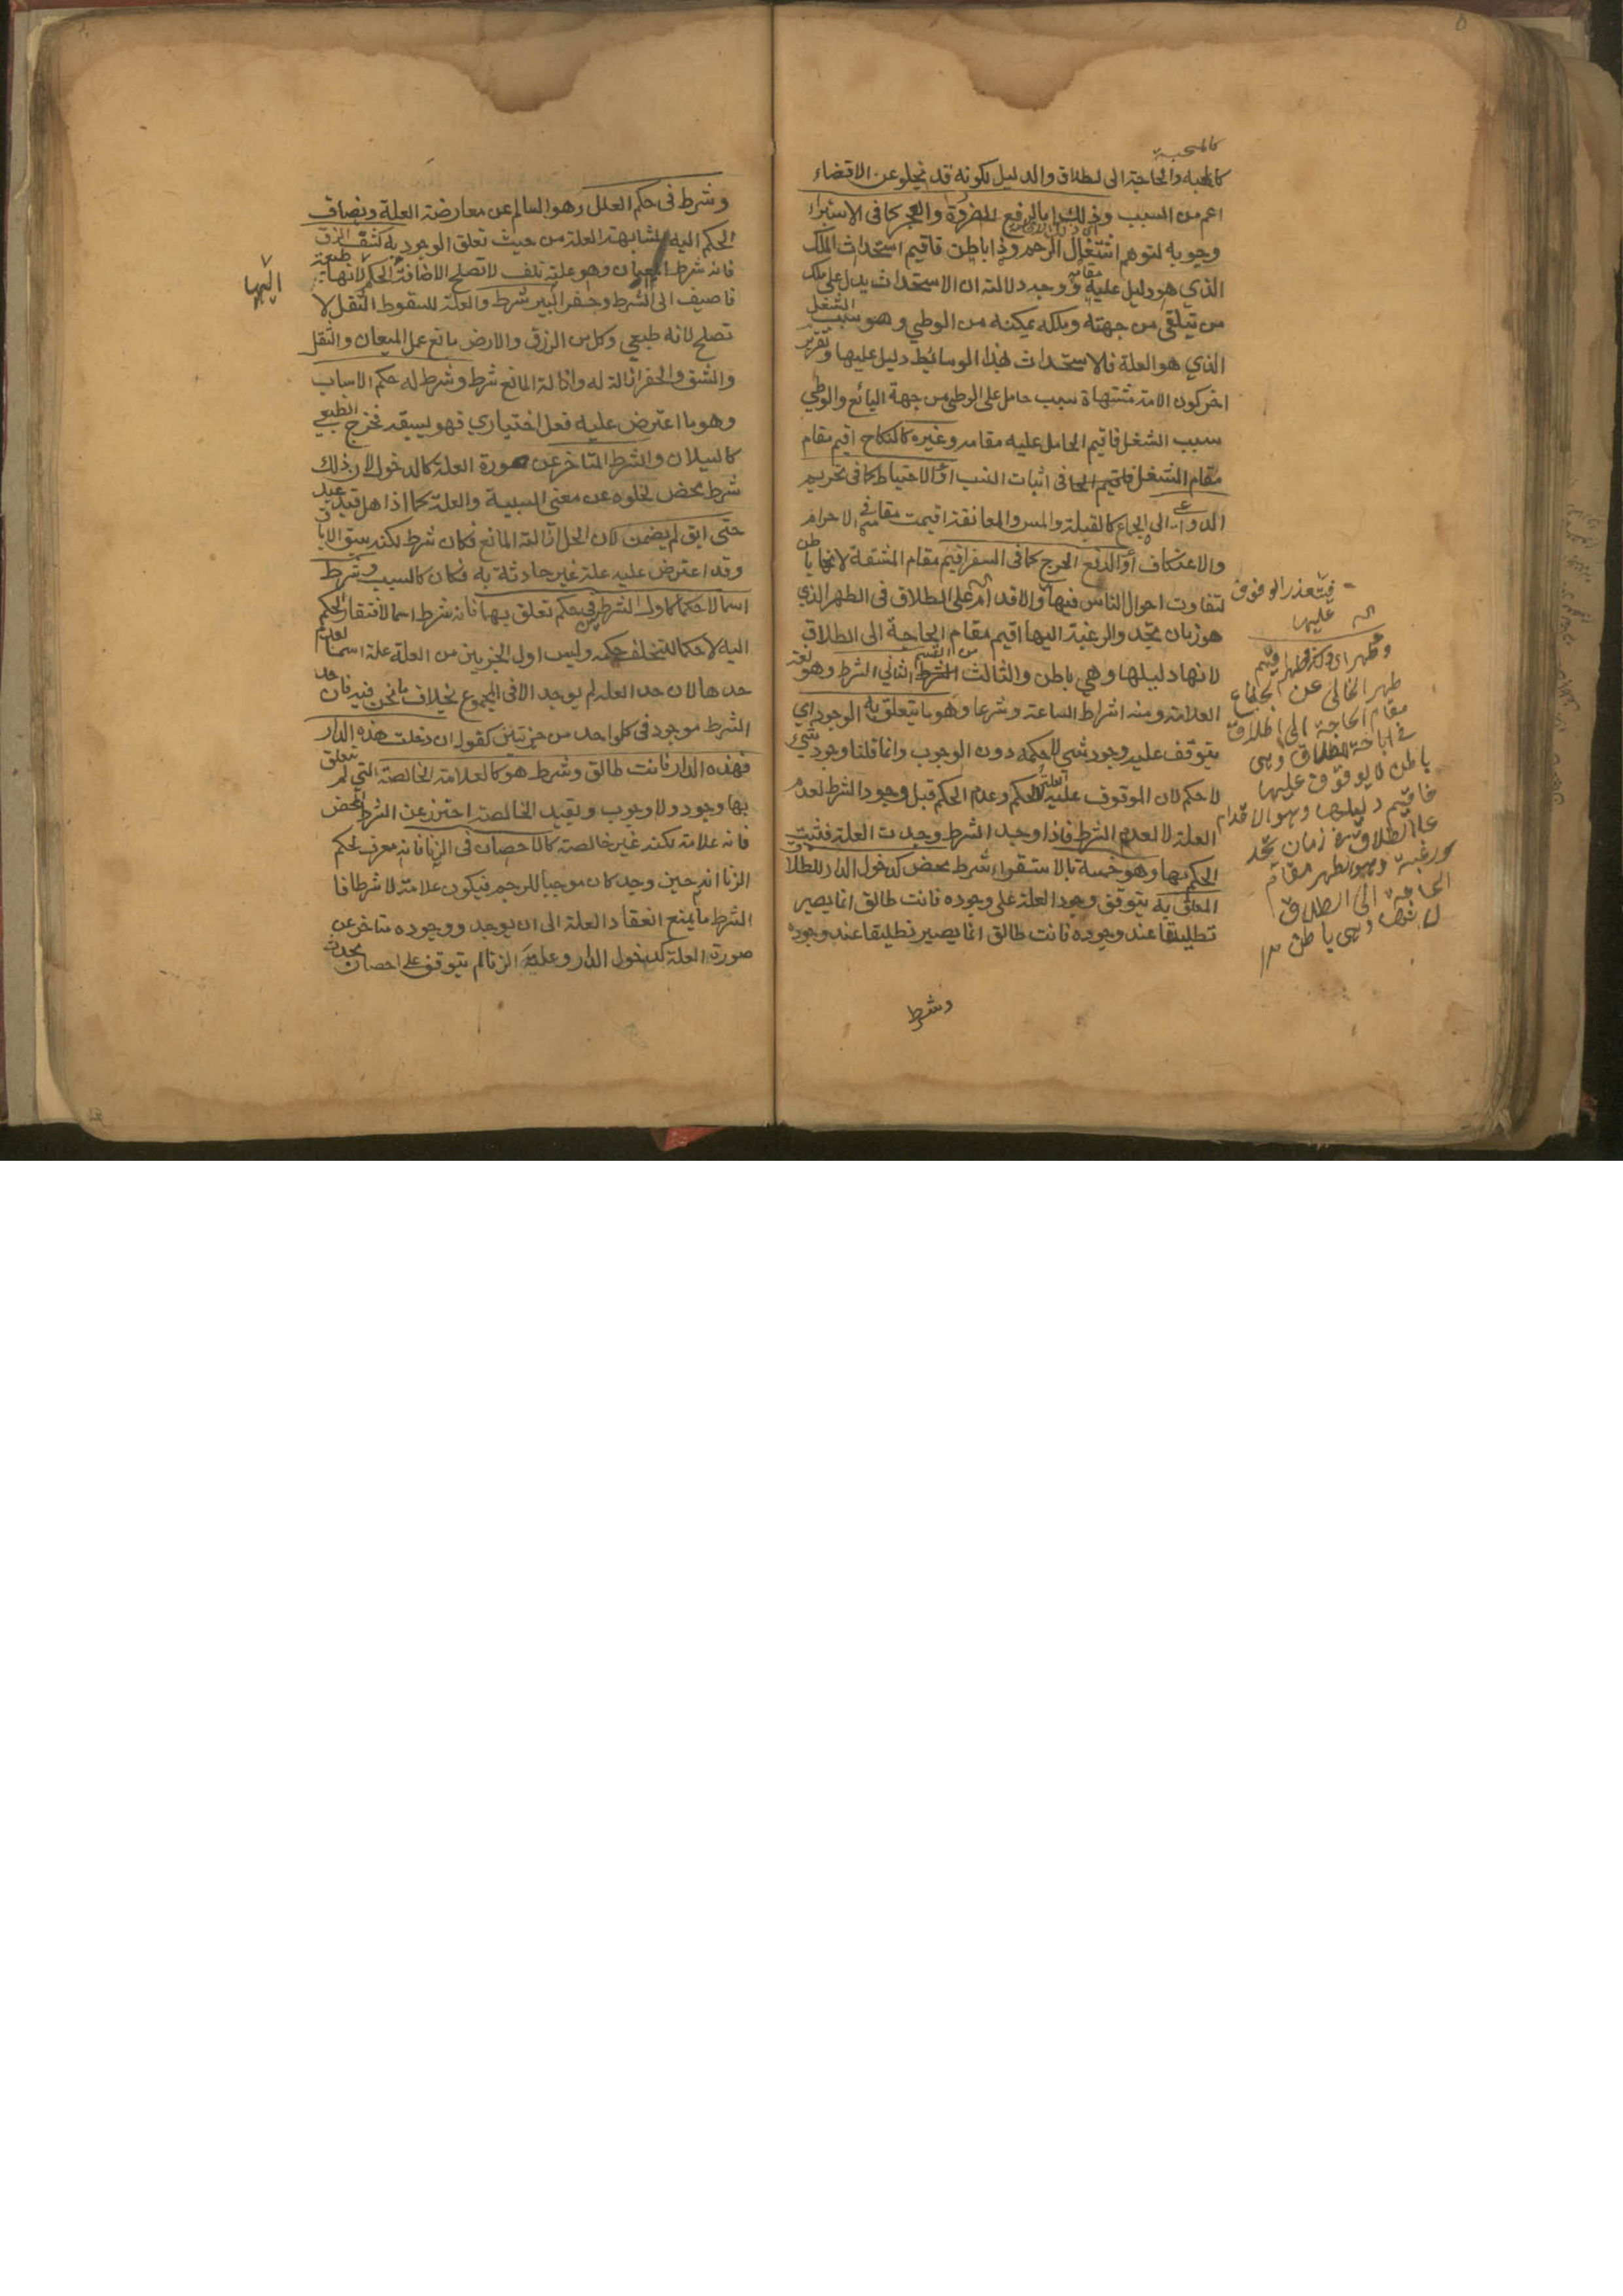 كالمحبة
كالمحبة والحاجة الى لطلاق والدليل لكونه قد يخلو عن الاقتضاء
اعم من السبب وذلك اما لرفع الضرورة والعجز كما فى الاستبراء
وجوبه لتوهم اشتغال الرحم وذا باطن فاقيم استحداث الملك
الذي هو دليل عليه مقامه ووجه دلالته ان الاستحداث يدل على ملك
من تيلقى من جهته وملكه يمكنه من الوطي وهو سبب الشغل
الذي هو العلة فالاستحداث بهذا الوسائط دليل عليها وتقرير
اخر كون الامة مشتهاة سبب حامل على الوطي من جهة البائع والوطي
سبب الشغل فاقيم الحامل عليه مقامه وغيره كالنكاح اقيم مقام
مقام الشغل فى اثبات النسب او الاحتياط كما فى تحريم
الدواعي الى الجماع كالقبلة والمس والمعانقة اقيمت مقامه فى الاحرام
والاعتكاف او لدفع الحرج كما فى السفر اقيم مقام المشقة لانها باطن
لتفاوت احوال الناس فيها والاقدام على الطلاق فى الطهر الذي
هو زمان تجدد الرغبة اليها اقيم مقام الحاجة الى الطلاق
لانها دليلها وهي باطن والثالث من القسم الثاني الشرط وهو لغة
العلامة ومنه اشراط الساعة وشرعا وهو ما يتعلق به الوجود اي
يتوقف عليه وجود شي للحكمه دون الوجوب وانما قلنا وجود شيء
لا حكم لان الموقوف عليه العلة لا الحكم وعدم الحكم قبل وجود الشرط لعدم
العلة لا لعدم الشرط فاذا وجد الشرط وجدت العلة فثبت
الحكم بها وهو خمسة بالاستقراء شرط محض كدخول الدار للطلاق
المعلق به يتوقف وجود العلة على وجوده فانت طالق انما يصير
تطليقا عند وجوده فانت طالق انما يصير تطليقا عند وجوده
وشرط
فيتعذر الوقوف
عليها
طهر الخالى عن الجماع
مقام الحاجة الى الطلاق
فى اباحة الطلاق وهى
باطن لا يوقف عليها
فاقيم دليلها وهو الاقدام
على الطلاق فى زمان تجدد
رغبة وهو الطهر مقام
الحاجة الى الطلاق
وهى باطن
وشرط فى حكم العلل وهو السالم عن معارضة العلة ويضاف
الحكم اليه لمشابهته العلة من حيث تعلق الوجود به كشق الزق
فانه شرط السيلان وهو علة تلف لا تصلح لاضافة الحكم لانها طبيعة
اليها
فاضيف الى الشرط وحفر البير شرط والعلة للسقوط الثقل لا
تصلح لانه طبعي وكل من الزق والارض مانع عمل الميعان والثقل
والشق والحفر ازالة له وازالة المانع شرط وشرط له حكم الاسباب
وهو ما اعترض عليه فعل اختياري فهو يسبقه فخرج الطبعي
كالسيلان والشرط المتاخر عن صورة العلة كالدخول لان ذلك
شرط محض لخلوه عن معنى السببية والعلة كما اذا حل قيد عبد
حتى ابق لم يضمن لان الحل ازالة المانع فكان شرط لكنه سبق الاباق
وقد اعترض عليه علة غير حادثة به فكان كالسبب وشرط
اسما لا حكما كاول الشرطين فى حكم تعلق بهما فانه شرط اسما لافتقار الحكم
اليه لا حكما لتخلف حكمه وليس اول الجزيين من العلة علة اسما لعدم
حدها لان حد العلة لم يوجد الا فى المجموع بخلاف ما نحن فيه فان حد
الشرط موجود فى كل واحد من جزئين كقوله ان دخلت هذه الدار
فهذه الدار فانت طالق وشرط هو كالعلامة الخالصة التي لم تتعلق
بها وجود ولا وجوب وبقيد الخالصة احترز عن الشرط المحض
فانه علامة لكنه غير خالصة كالاحصان فى الزنا فانه معرف لحكم
الزنا انه حين وجد كان موجبا للرجم فيكون علامة لا شرطا فا
الشرط ما يمنع انعقاد العلة الى ان يوجد ووجوده متاخر عن
صورة العلة كدخول الدار وعلية الزنا لم يتوقف على احصان يحدث